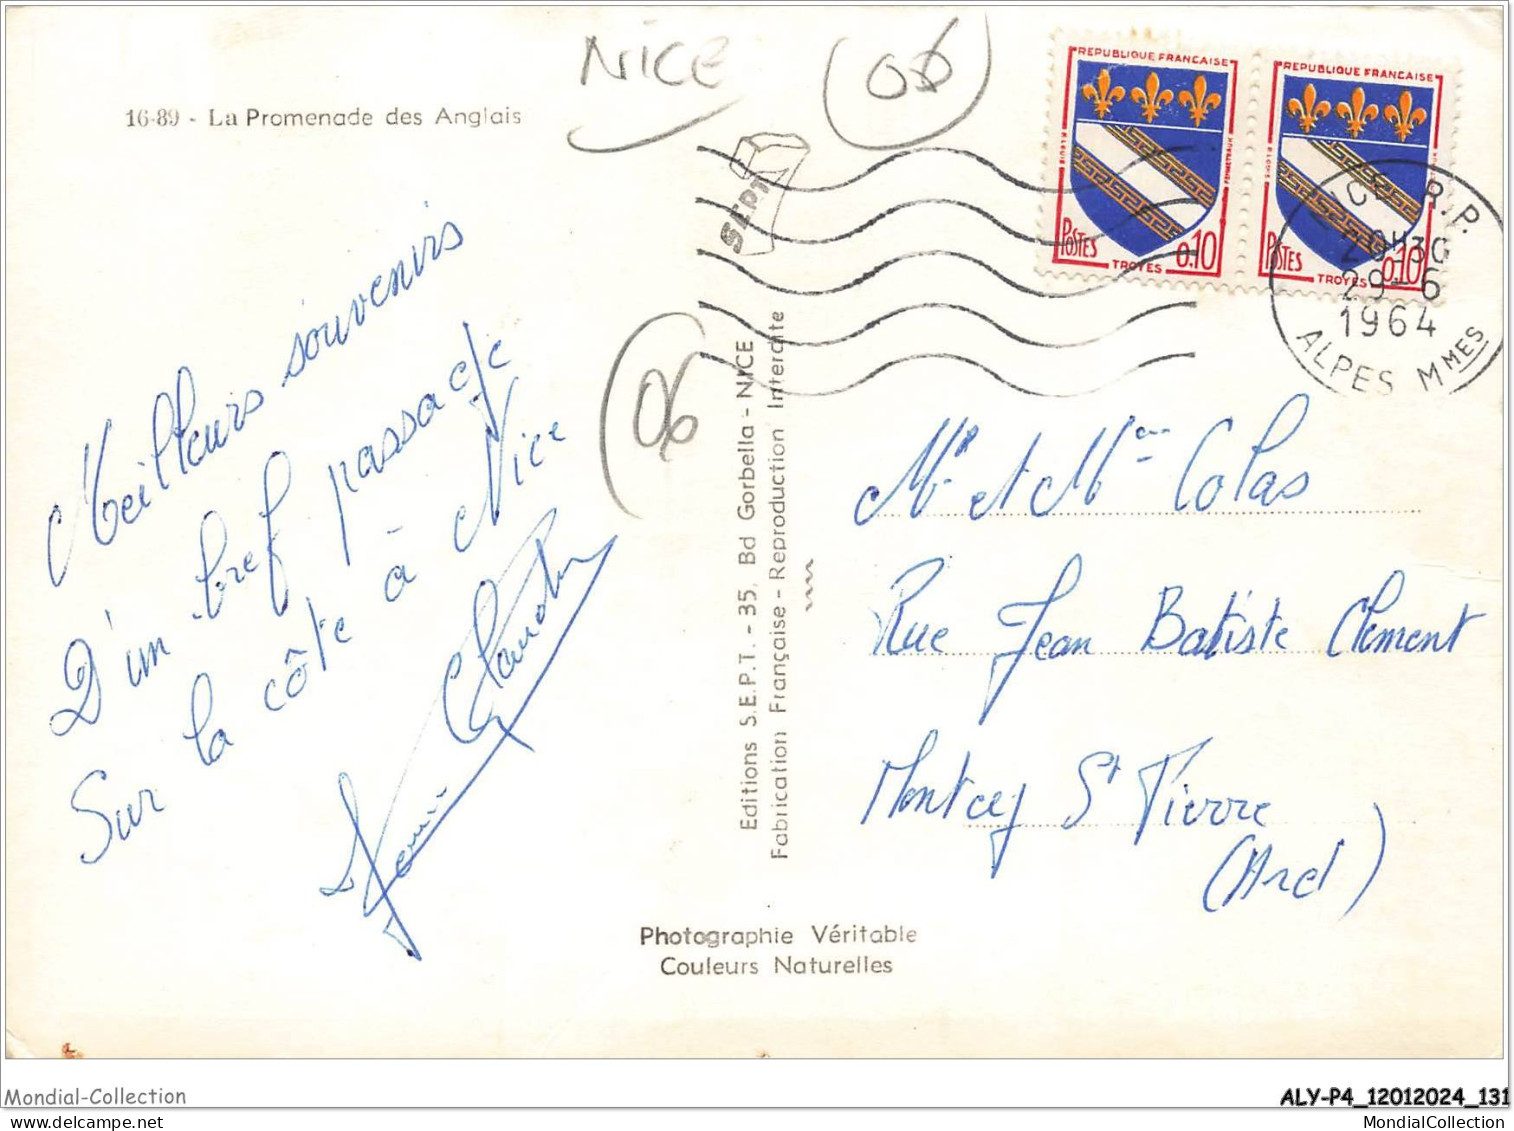 NICE
06
16-89 - La Promenade des Anglais
SEPT
REPUBLIQUE FRANÇAISE
POSTES
TROYES
0.10
REPUBLIQUE FRANÇAISE
POSTES
TROYES
0.10
R.P.
29-6
1964
ALPES MMES
Meilleurs souvenirs
D'un bref passage
Sur la côte à Nice
06
Editions S.E.P.T. - 35, Bd Gorbella - NICE
Fabrication Française - Reproduction Interdite
Mr et Mme Colas
Rue Jean Batiste Clement
Montcy St Pierre
(Ard)
Photographie Véritable
Couleurs Naturelles
Mondial-Collection
ALY-P4_12012024_131
MondialCollection